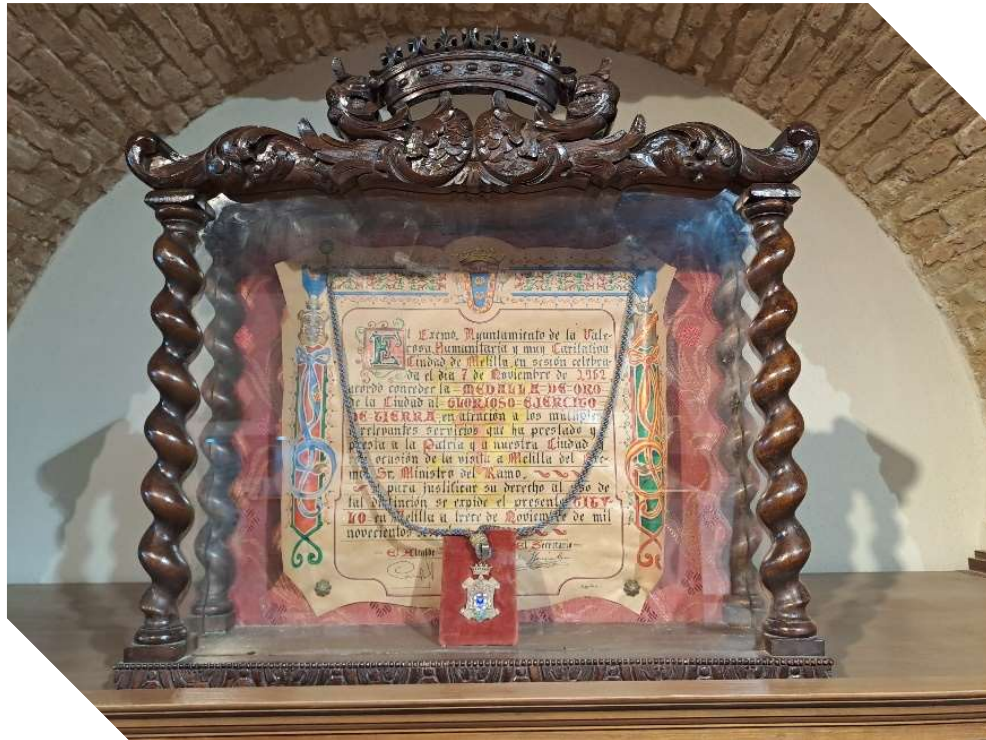 El Excmo. Ayuntamiento de la Vale-
rosa, Humanitaria y muy Caritativa
Ciudad de Melilla, en sesión celebra-
da el día 7 de Noviembre de 196
acordó conceder la MEDALLA DE ORO
de la Ciudad al GLORIOSO EJÉRCITO
DE TIERRA, en atención a los múltiples
y relevantes servicios que ha prestado y
presta a la Patria y a nuestra Ciudad
ocasión de la visita a Melilla del
mo. Sr. Ministro del Ramo.
y para justificar su derecho al uso de
tal distinción se expide el presente TITU-
LO en Melilla a trece de Noviembre de mil
novecientos
El Alcalde El Secretario